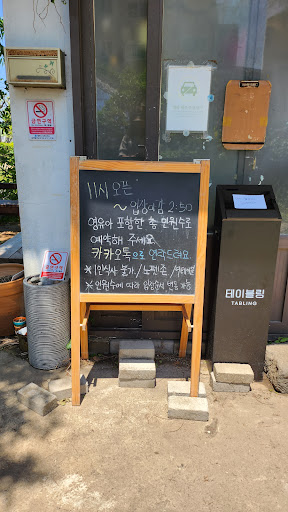 금연구역
11시 오픈
~ 입장마감 2:50
영유아 포함한 총 인원수로
예약해 주세요
카카오톡으로 연락드려요.
※ 1인식사 불가 / 노펫존 /
※ 인원수에 따라 입장순서 변동 가능
테이블링
TABLING